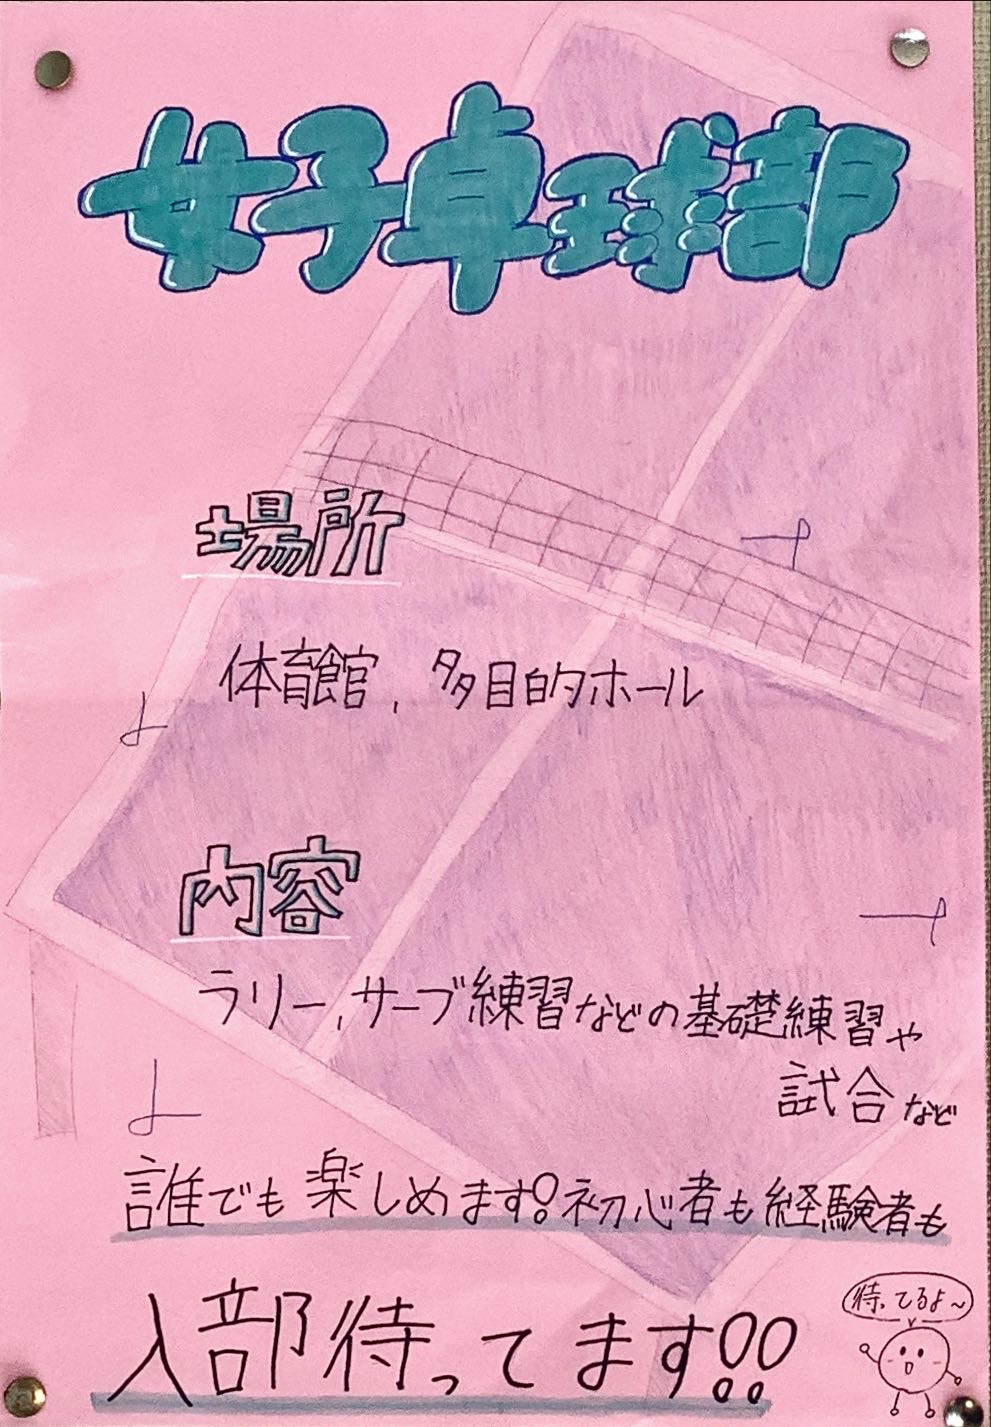 女子卓球部
場所
体育館、多目的ホール
内容
ラリー、サーブ練習などの基礎練習や
試合など
誰でも楽しめます!初心者も経験者も
入部待ってます!!
待ってるよ~